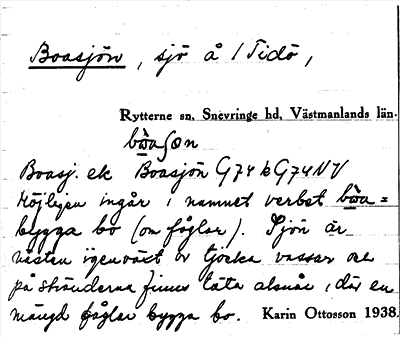 Boasjön, sjö å / Tidö,
Rytterne sn, Snevringe hd, Västmanlands län.
Boasj. ek Boasjön G74 b G74NV
Möjligen ingår i namnet verbet
bygga bo (om fåglar). Sjön är
nästan igenväxt av tjocka vassar och
på stränderna finns täta alsnår, där en
mängd fåglar bygga bo. Karin Ottosson 1938.